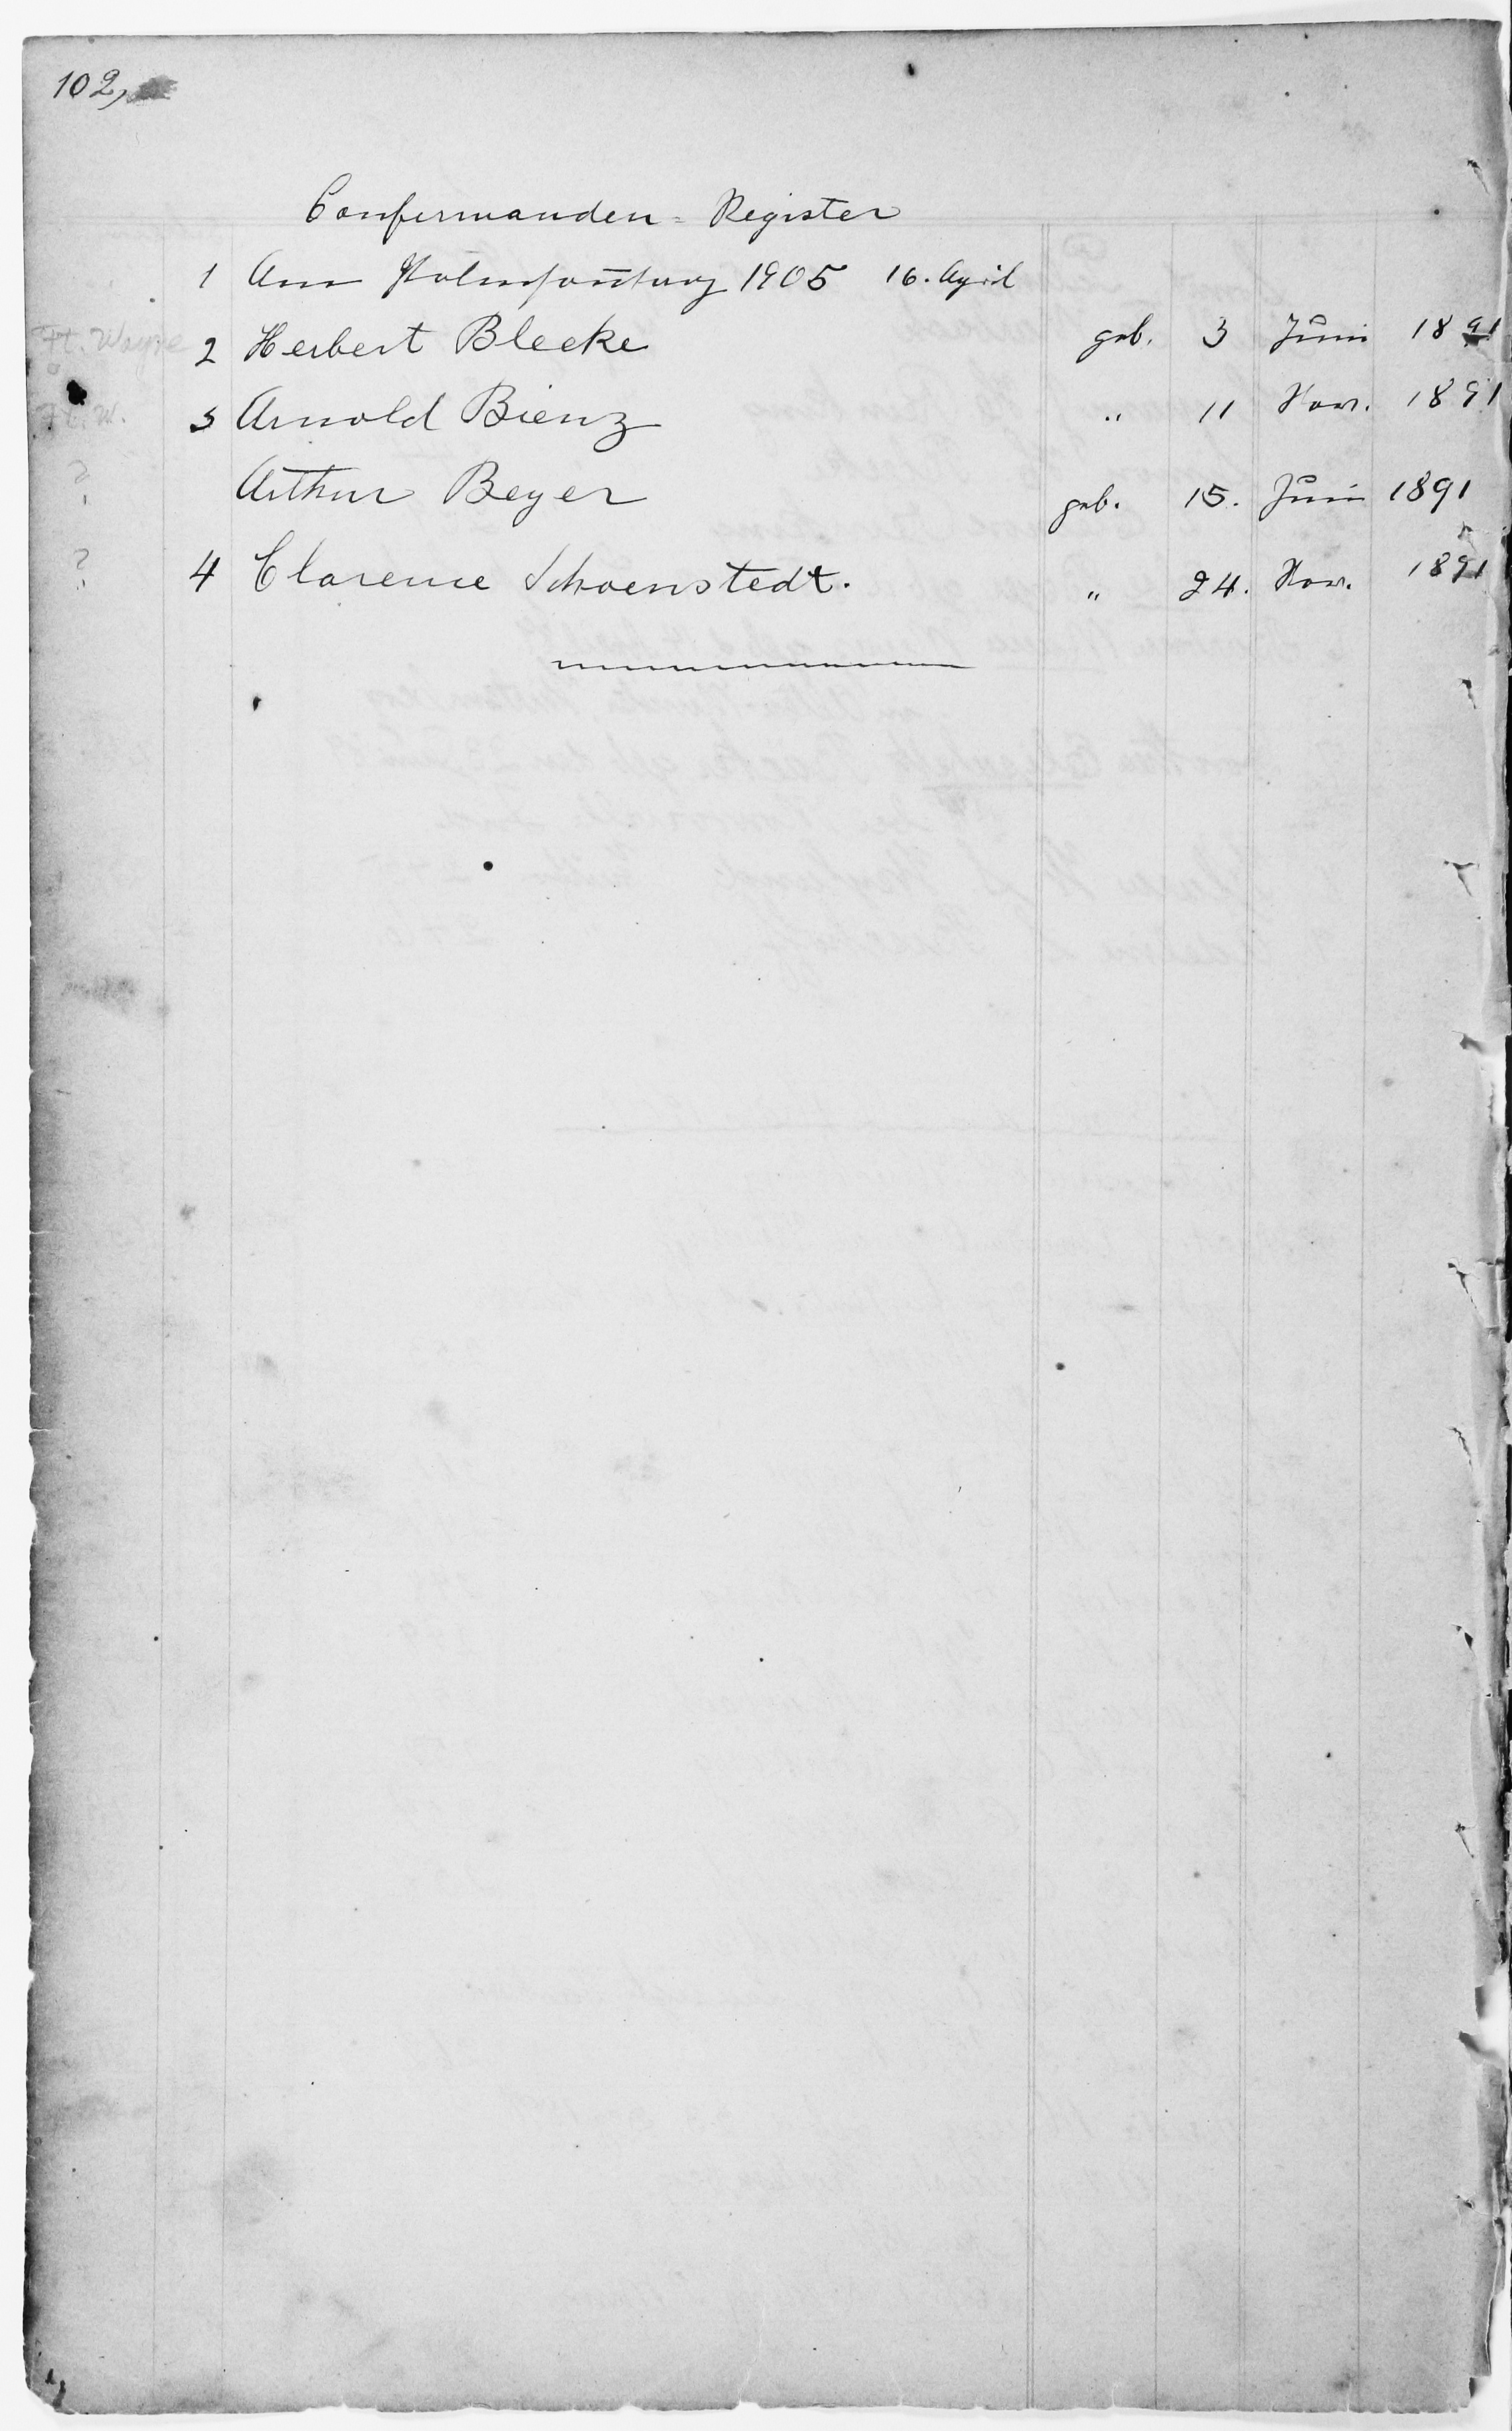 102,
Confirmanden = Register
1 Am Palmsonntag 1905 16. April
Ft. Wayne 2 Herbert Bleeke geb. 3 Juni 1891
Ft. W. 3 Arnold Bienz " 11 Nov. 1891
? Arthur Beyer geb. 15. Juni 1891
? 4 Clarence Schoenstedt. " 24. Nov. 1891